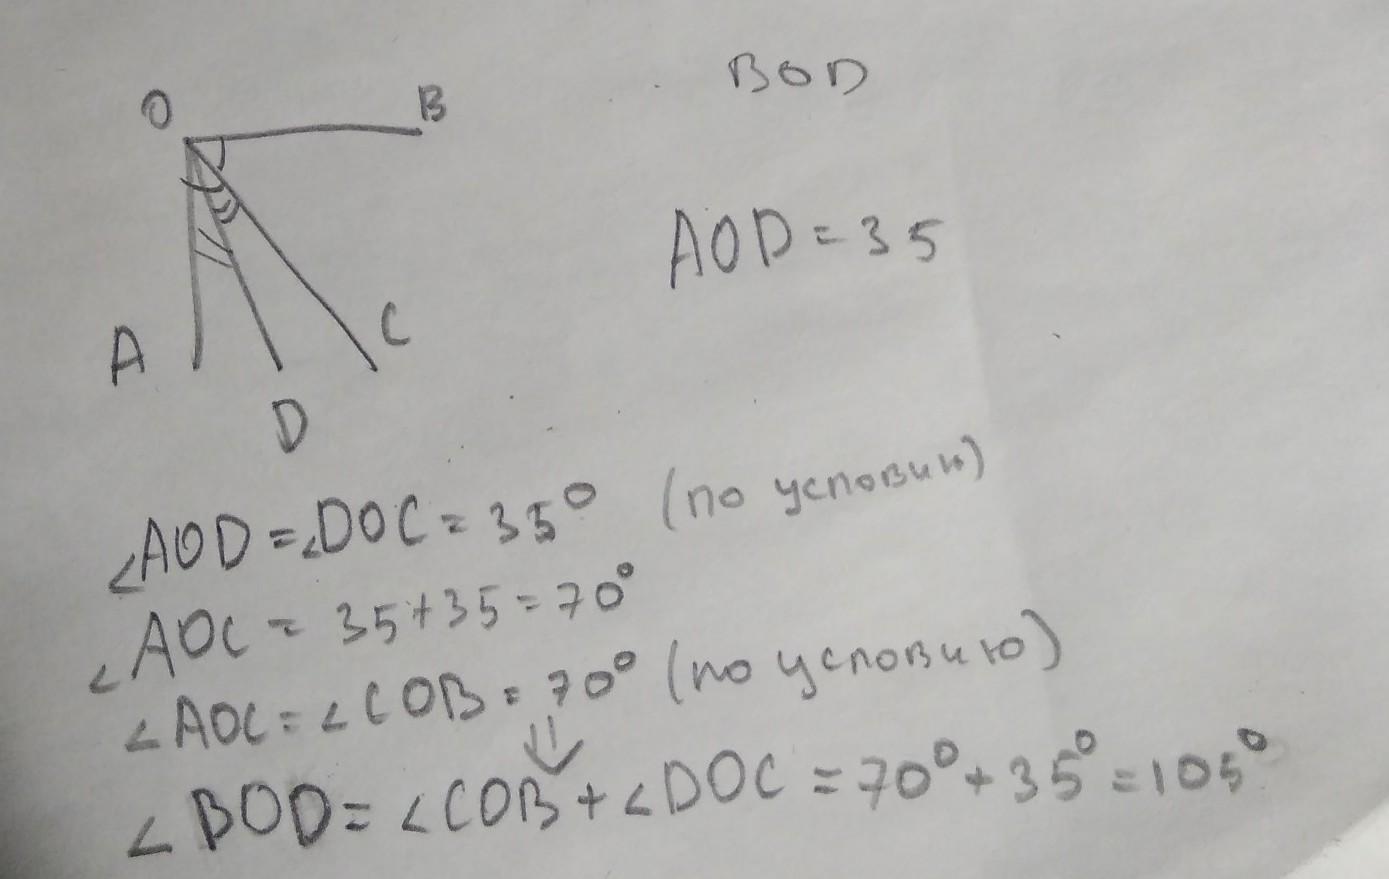 O
B
BOD
AOD = 35
A
C
D
∠AOD = ∠DOC = 35° (по условию)
∠AOC = 35+35 = 70°
∠AOC = ∠COB = 70° (по условию)
⇓
∠BOD = ∠COB + ∠DOC = 70° + 35° = 105°